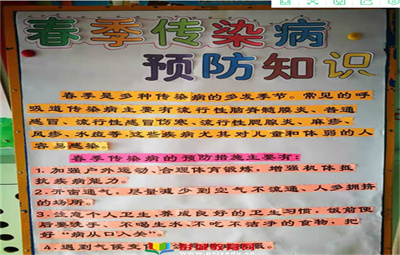 春季传染病
预防知识
春季是多种传染病的多发季节。常见的呼
吸道传染病主要有流行性脑脊髓膜炎、普通
感冒、流行性感冒伤寒、流行性腮腺炎、麻疹、
风疹、水痘等,这些疾病尤其对儿童和体弱的人
容易感染。
春季传染病的预防措施主要有:
1.加强户外运动、合理体育锻炼,增强机体抵
抗疾病能力。
2.开窗通气,尽量减少到空气不流通、人多拥挤
的场所。
3.注意个人卫生,养成良好的卫生习惯,饭前便
后要洗手、不喝生水、不吃不洁净的食物,把
好“病从口入关”。
4.遇到气候变